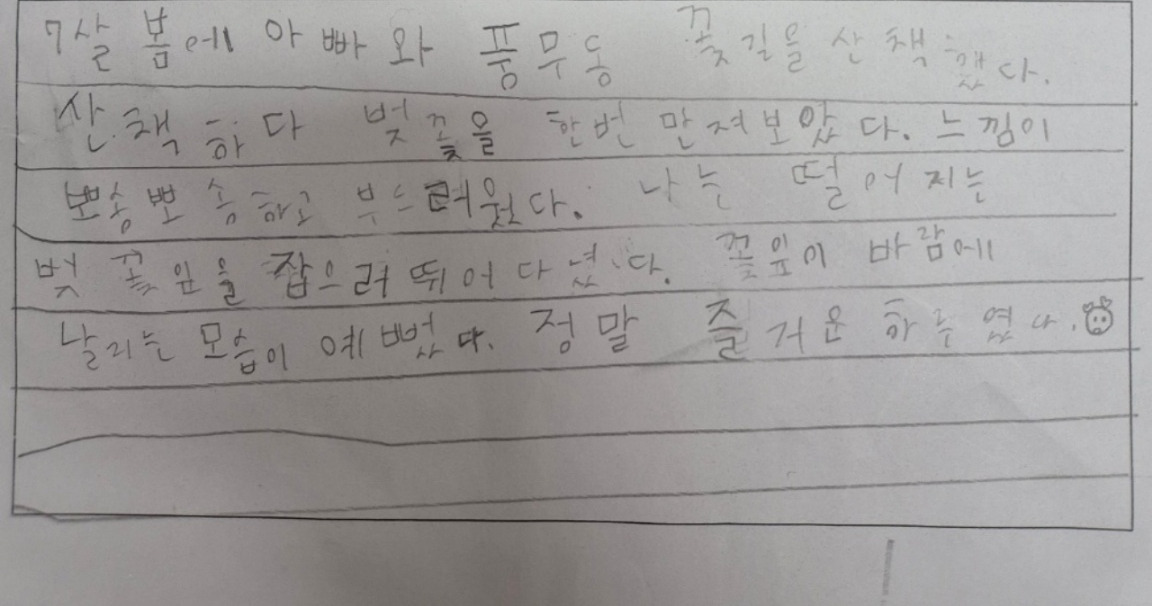 7살 봄에 아빠와 풍무동 꽃길을 산책했다.
산책하다 벚꽃을 한번 만져보았다. 느낌이
뽀송뽀송하고 부드려웠다. 나는 떨어지는
벚꽃잎을 잡으러 뛰어다녔다. 꽃잎이 바람에
날리는 모습이 예뻤다. 정말 즐거운 하루였다.